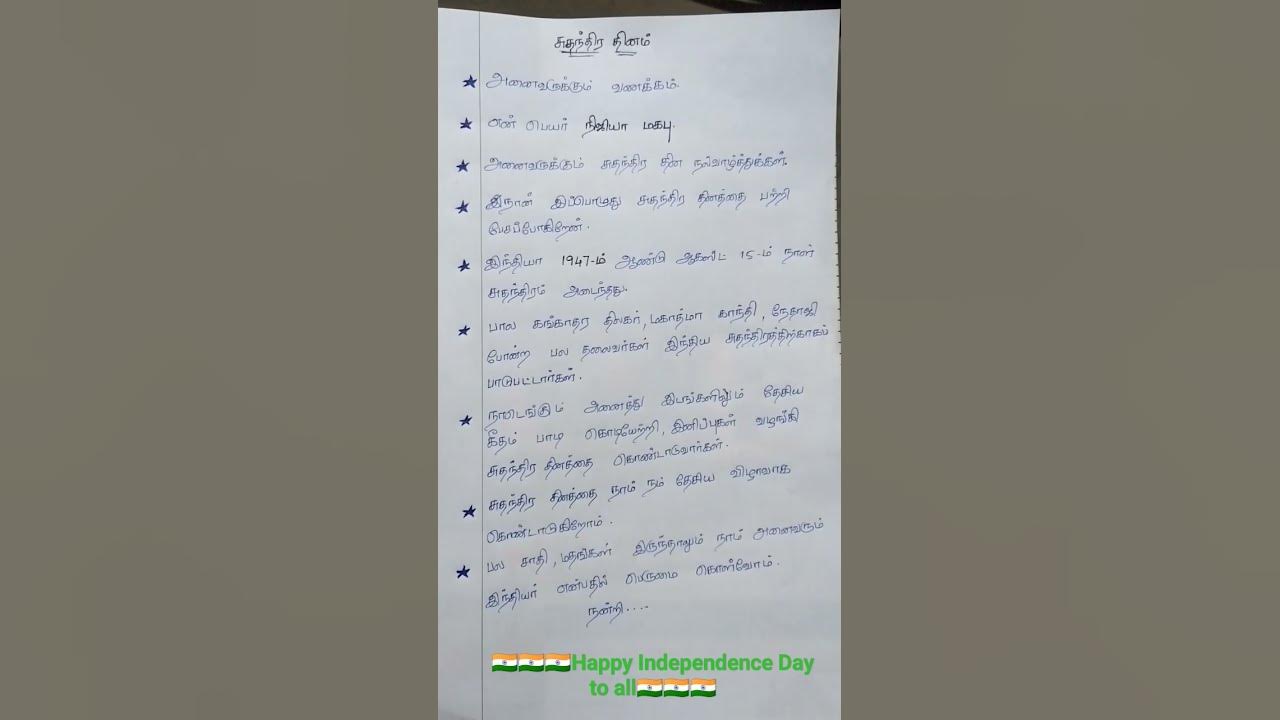 சுதந்திர தினம்
★ அனைவருக்கும் வணக்கம்.
★ என் பெயர் நிஜியா மகபு.
★ அனைவருக்கும் சுதந்திர தின நல்வாழ்த்துக்கள்.
★ நான் இப்பொழுது சுதந்திர தினத்தை பற்றி
பேசப்போகிறேன்.
★ இந்தியா 1947-ம் ஆண்டு ஆகஸ்ட் 15-ம் நாள்
சுதந்திரம் அடைந்தது.
★ பால கங்காதர திலகர், மகாத்மா காந்தி, நேதாஜி
போன்ற பல தலைவர்கள் இந்திய சுதந்திரத்திற்காகப்
பாடுபட்டார்கள்.
★ நாடெங்கும் அனைத்து இடங்களிலும் தேசிய
கீதம் பாடி கொடியேற்றி, இனிப்புகள் வழங்கி
சுதந்திர தினத்தை கொண்டாடுவார்கள்.
★ சுதந்திர தினத்தை நாம் நம் தேசிய விழாவாக
கொண்டாடுகிறோம்.
★ பல சாதி, மதங்கள் இருந்தாலும் நாம் அனைவரும்
இந்தியர் என்பதில் பெருமை கொள்வோம்.
நன்றி....
🇮🇳🇮🇳🇮🇳Happy Independence Day
to all🇮🇳🇮🇳🇮🇳